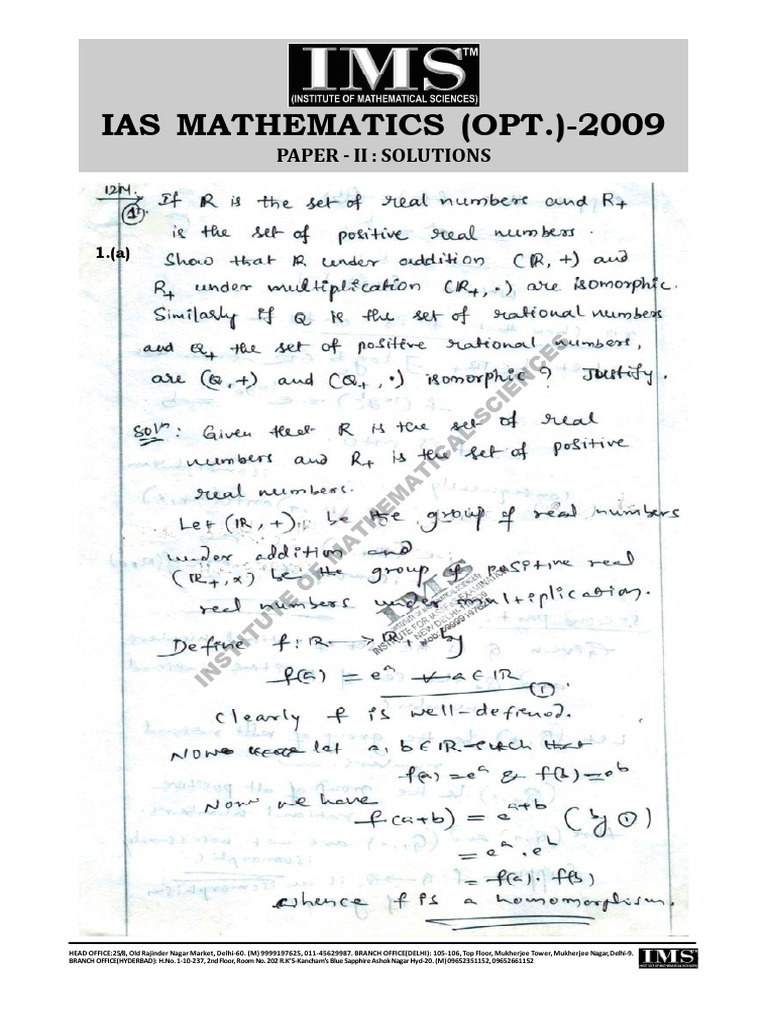 IMS™
(INSTITUTE OF MATHEMATICAL SCIENCES)
IAS MATHEMATICS (OPT.)-2009
PAPER - II : SOLUTIONS
12M.
1.(a)
If R is the set of real numbers and R+
is the set of positive real numbers.
Show that R under addition (R, +) and
R+ under multiplication (R+, •) are isomorphic.
Similarly if Q is the set of rational numbers
and Q+ the set of positive rational numbers,
are (Q, +) and (Q+, •) isomorphic? Justify.
Soln: Given that R is the set of real
numbers and R+ is the set of positive
real numbers.
Let (R, +) be the group of real numbers
under addition and
(R+, x) be the group of positive real
real numbers under multiplication.
Define f: R → R+ by
f(a) = e^a ∀ a ∈ R
①
Clearly f is well-defined.
Now let a, b ∈ R such that
f(a) = e^a & f(b) = e^b
Now we have
f(a+b) = e^{a+b} (by ①)
= e^a . e^b
= f(a) . f(b)
whence f is a homomorphism.
INSTITUTE OF MATHEMATICAL SCIENCES
IMS
HEAD OFFICE:25/8, Old Rajinder Nagar Market, Delhi-60. (M) 9999197625, 011-45629987. BRANCH OFFICE(DELHI): 105-106, Top Floor, Mukherjee Tower, Mukherjee Nagar, Delhi-9.
BRANCH OFFICE(HYDERBAD): H.No. 1-10-237, 2nd Floor, Room No. 202 R.K'S-Kancham's Blue Sapphire Ashok Nagar Hyd-20. (M)09652351152, 09652661152
IMS